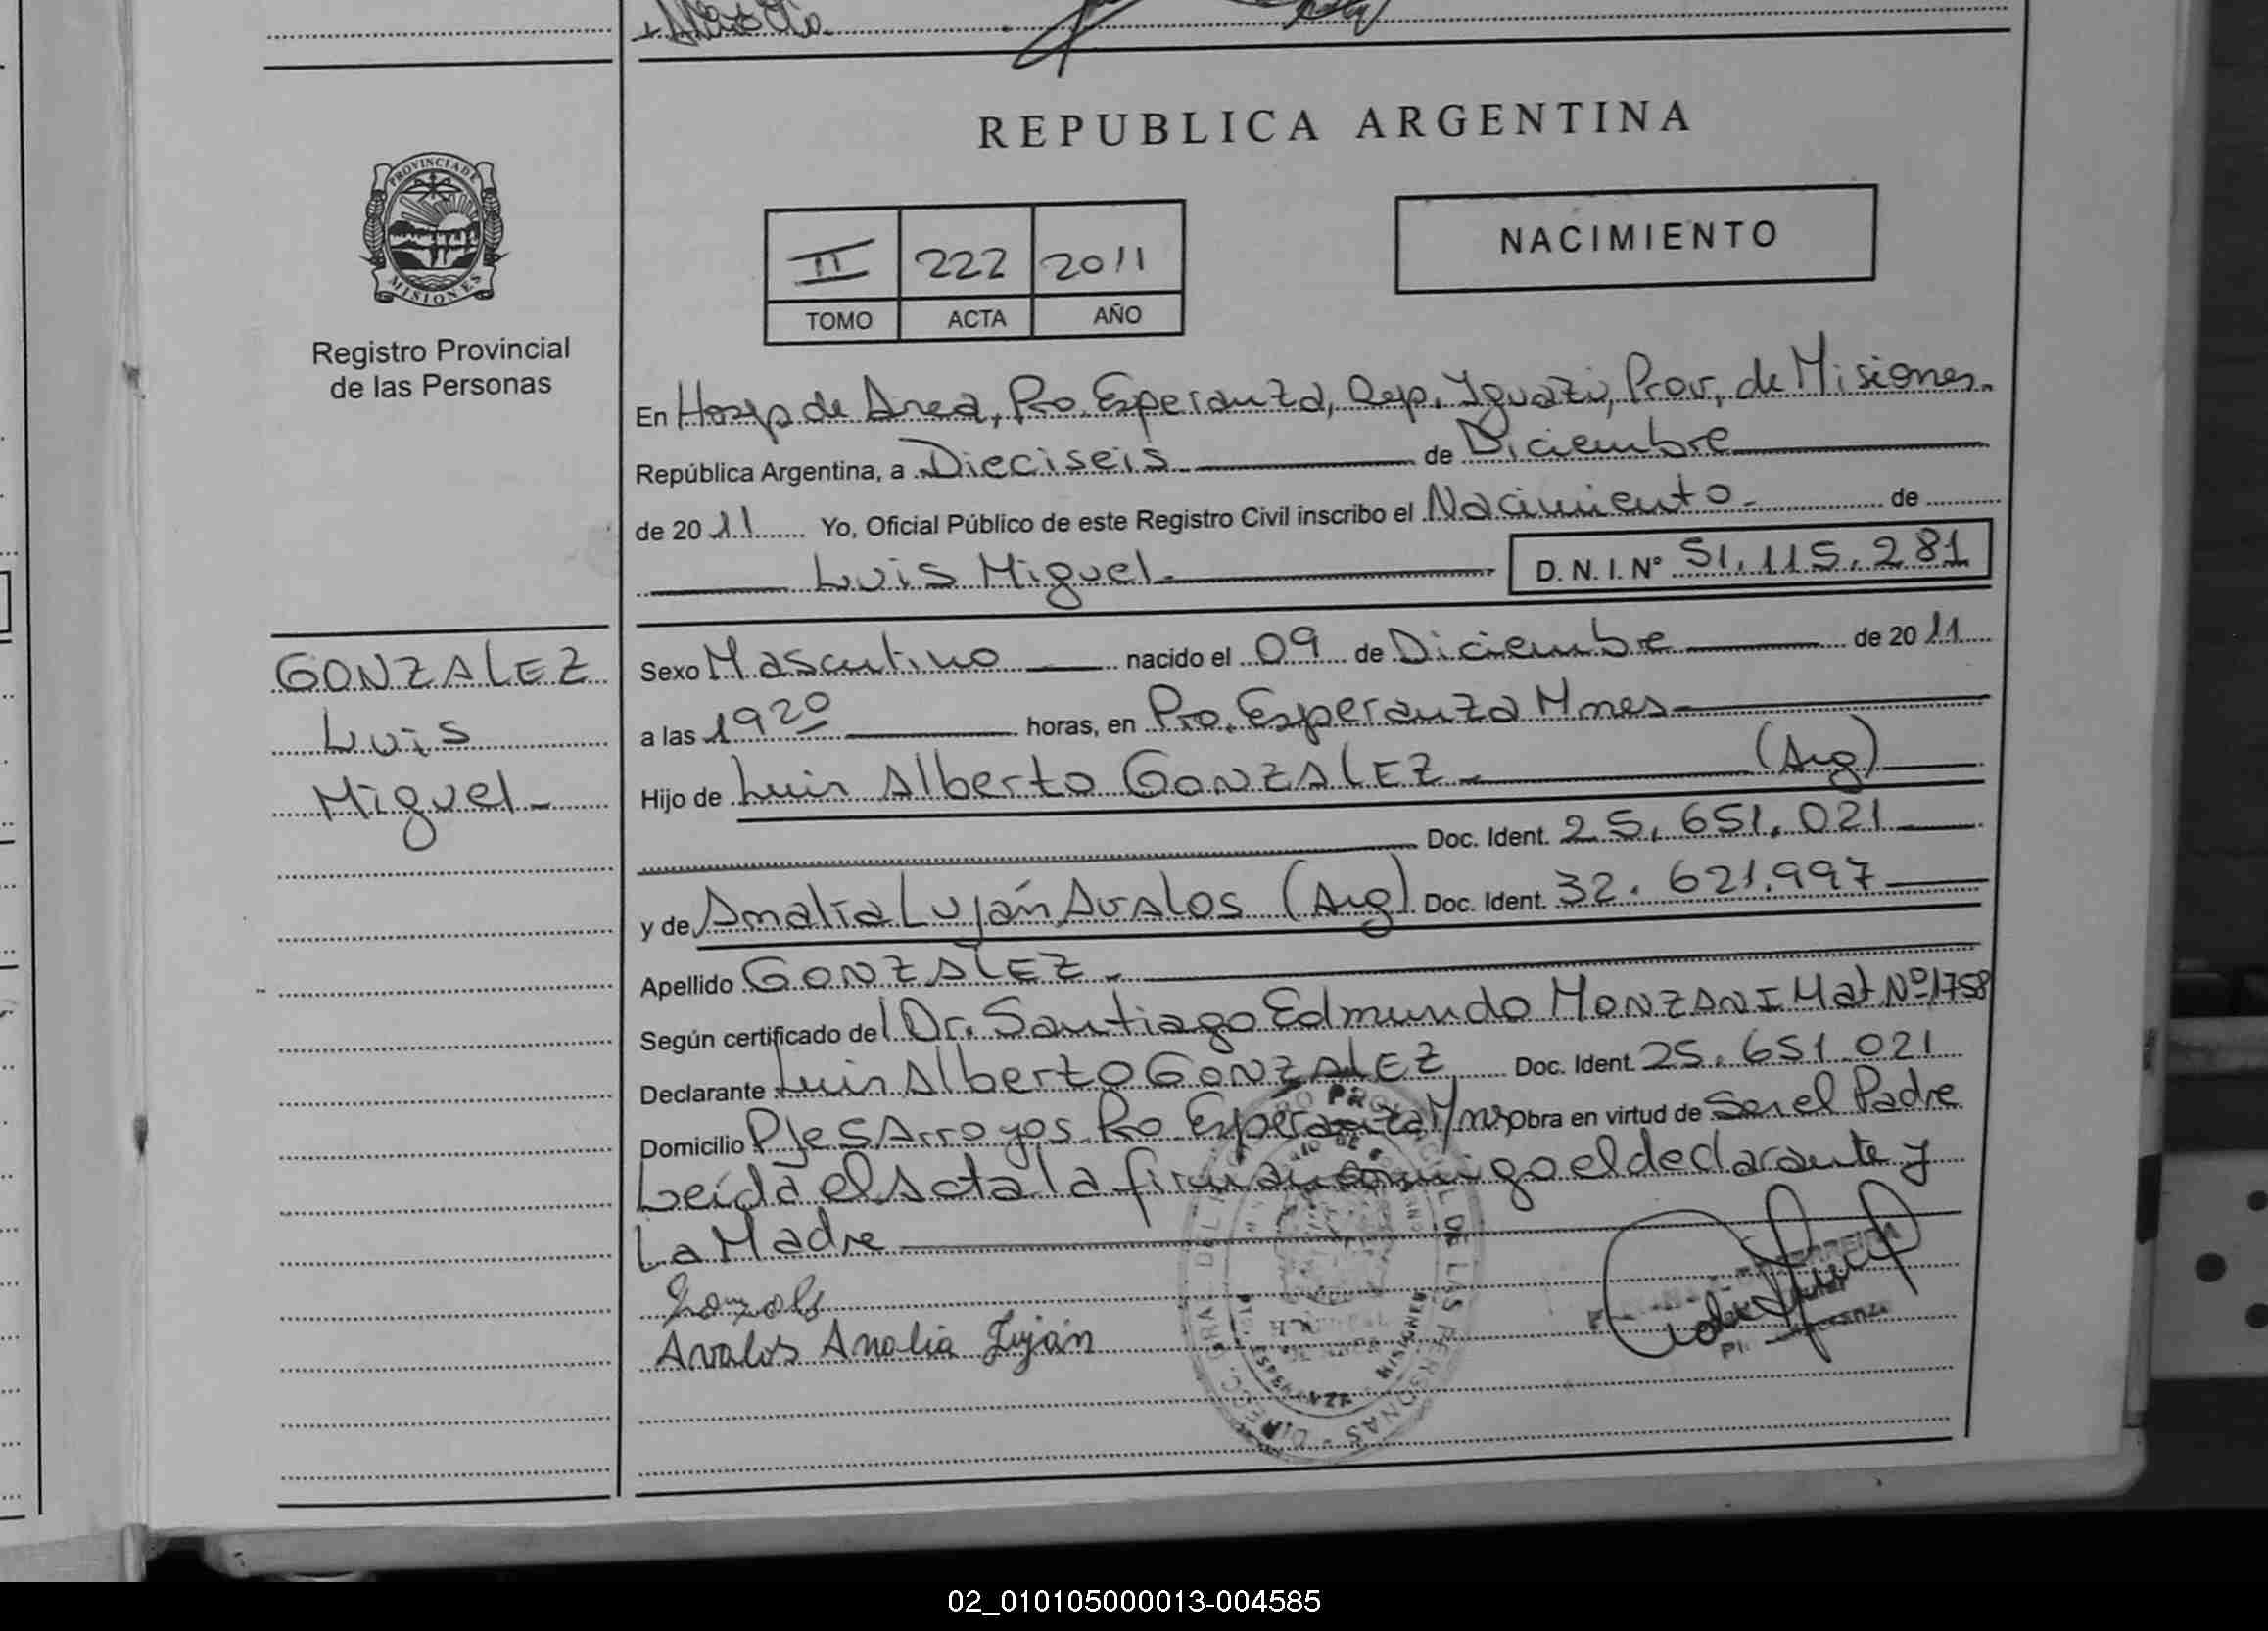 REPUBLICA ARGENTINA
PROVINCIA DE
MISIONES
Registro Provincial
de las Personas
II 222 2011
TOMO ACTA AÑO
NACIMIENTO
En Hosp de Area, Pto. Esperanza, Dep. Iguazú, Prov. de Misiones.
República Argentina, a Dieciseis de Diciembre
de 2011 Yo, Oficial Público de este Registro Civil inscribo el Nacimiento de
Luis Miguel D.N.I. N° 51.115.281
GONZALEZ
Luis
Miguel
Sexo Masculino nacido el 09 de Diciembre de 2011
a las 1920 horas, en Pto. Esperanza Mnes
Hijo de Luis Alberto GONZALEZ (Arg)
Doc. Ident. 25.651.021
y de Analía Luján AVALOS (Arg) Doc. Ident. 32.621.997
Apellido GONZALEZ
Según certificado del Dr. Santiago Edmundo MONZANI Mat Nº 1758
Declarante Luis Alberto GONZALEZ Doc. Ident. 25.651.021
Domicilio Pje 5 Arroyos Pto Esperanza Mnes Obra en virtud de Ser el Padre
Leída el Acta la firman conmigo el declarante y
La Madre
Avalos Analia Luján
DE LAS PERSONAS
ESPERANZA MISIONES
02_010105000013-004585